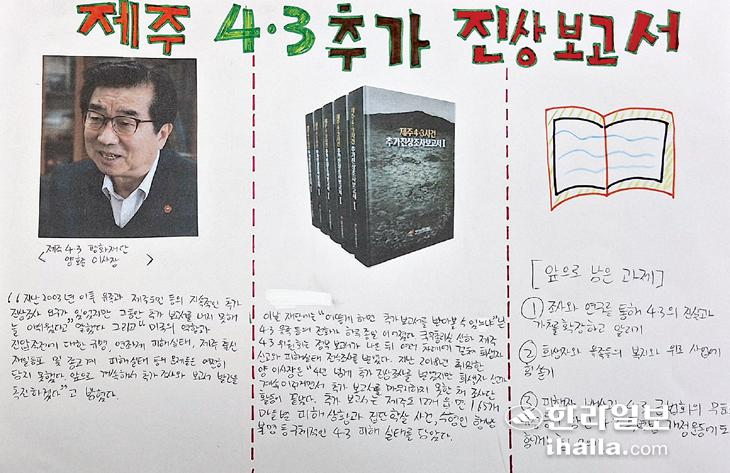 제주 4·3 추가 진상보고서
제주4·3사건
추가진상조사보고서 I
제주 4·3 평화재단
< 이사장 >
"지난 2003년 이후 유족과 제주도민 등의 지속적인 추가
진상조사 요구가 있었지만 그동안 추가 보고서를 내지 못해
늘 아쉬웠다"고 말했다. 그리고 "미국의 역할과
진압조직에 대한 규명, 연좌제 피해실태, 제주 출신
재일동포 및 종교계 피해실태 등의 문제는 여전히
담지 못했다. 앞으로 계속해서 추가 조사와 보고서 발간을
추진하겠다"고 밝혔다.
이날 재단에는 "어떻게 하면 추가 보고서를 받아볼 수 있느냐"는
4·3 유족 등의 전화가 하루 종일 이어졌다. 국무총리실 산하 제주
4·3위원회는 정부 보고서가 나온 뒤 여러 차례에 걸쳐 희생자
신고와 피해실태 진상조사를 벌였다. 지난 2018년 취임한
양 이사장은 "4년 넘게 추가 진상조사를 벌였지만 희생자 신고가
계속 이어지면서 추가 보고서를 마무리하지 못한 채 조사단
활동이 끝났다. 추가 보고서는 제주도 12개 읍·면 165개
마을별 피해 상황과 집단학살 사건, 수형인 행방
불명 등 구체적인 4·3 피해 실태를 담았다.
[앞으로 남은 과제]
① 조사와 연구를 통해 4·3의 진실과
가치를 확장하고 알리기
② 희생자와 유족들의 복지와 위로 사업에
힘쓰기
③
한라일보
ihalla.com